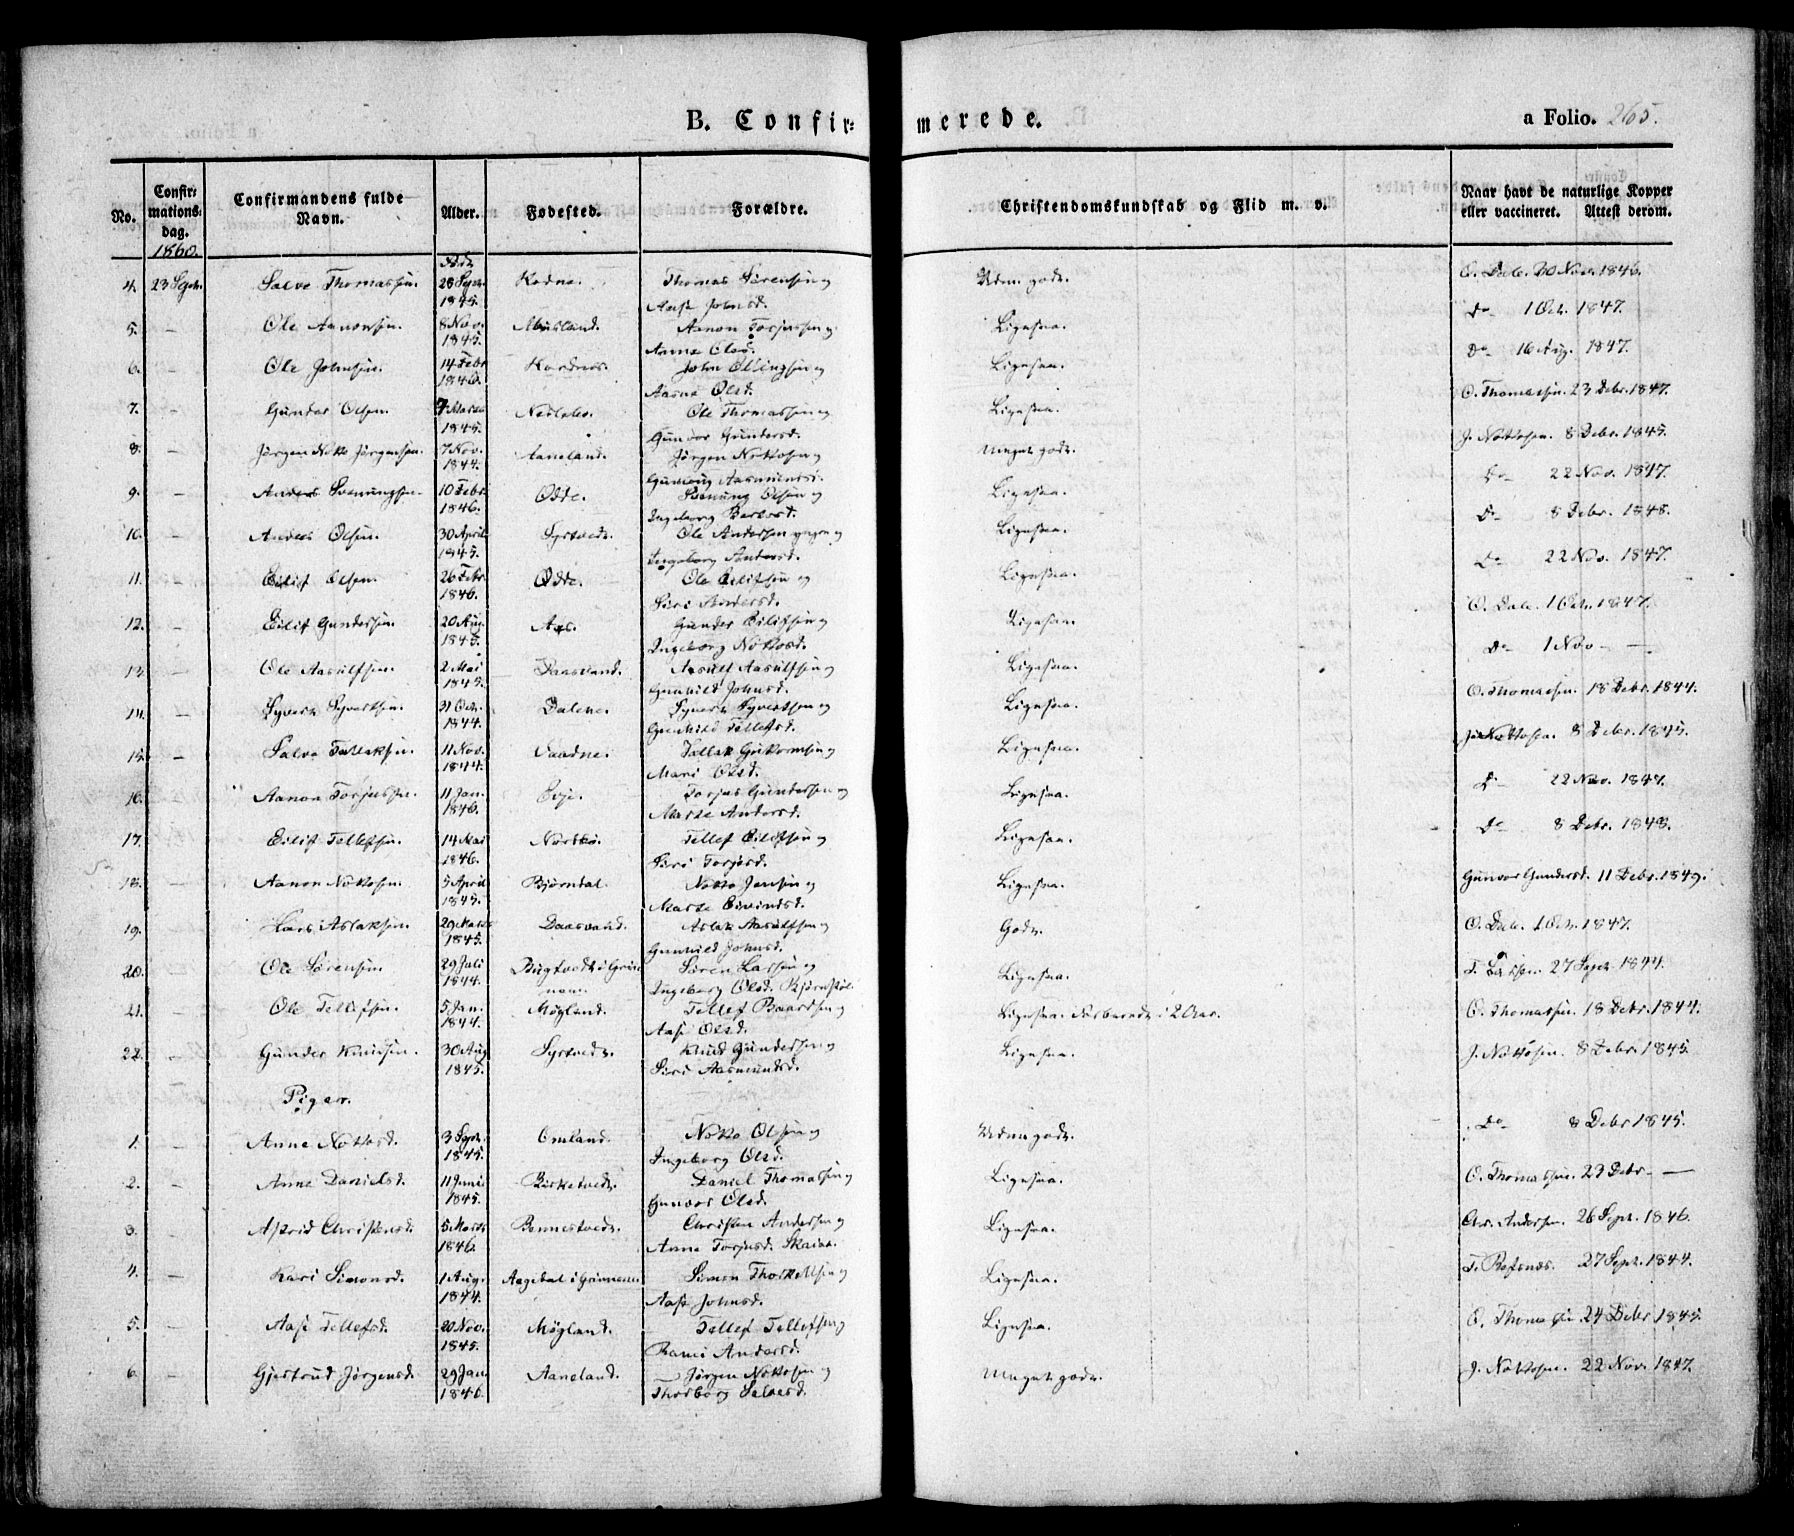 B. Confir= merede.
a Folio. 265.
No.
Confir= mations= dag.
Confirmandens fulde Navn.
Alder.
Fødested.
Forældre.
Christendomskundskab og Flid m. v.
Naar havt de naturlige Kopper eller vaccineret. Attest derom.
1860.
4. 23 Septr. Salve Thomassen. 28 Septr. 1845. Thomas Sørensen og Aase Johnsd. Uden. godt. O. Dale. 20 Nov. 1846.
5. - Ole Aanonsen. 8 Nov. 1845. Aanon Torjussen og Anne Olsd. Ligesaa. Do 1 Oct. 1847.
6. - Ole Johnsen. 14 Febr 1846. John Ellingsen og Aasne Olsd. Ligesaa. Do 16 Aug. 1847.
7. - Gunder Olsen. 1845. Ole Thomassen og Gunvor Gundersd. Ligesaa. O. Thomassen. 23 Debr. 1847.
8. - Jørgen Notto Jørgensen. 7 Nov. 1844. Aaneland. Jørgen Nottosen og Gunvor Aasmundsd. Meget godt. J. Nottosen. 8 Debr. 1845.
9. - Anders Svenungsen. 10 Febr 1846. Odde. Svenung Olsen og Ingeborg Ligesaa. Do 22 Nov. 1847.
10. - Anders Olsen. 30 April 1845. Syrtvedt. Ole Andersen yngre og Ingeborg Andersd. Ligesaa. Do 8 Debr. 1848.
11. - Eilif Olsen. 26 Febr. 1846. Odde. Ole Eilifsen og Siri Andersd. Ligesaa. Do 22 Nov. 1847.
12. - Eilif Gundersen. 20 Aug. 1845. Aas. Gunder Eilifsen og Ingeborg Nottosd. Ligesaa. O. Dale. 1 Oct. 1847.
13. - Ole Aasulfsen. 2 Mai 1845. Daasvand. Aasulf Aasulfsen og Gunhild Johnsd. Ligesaa. Do 1 Nov - -
14. - Syvert Syvertsen. 31 Oct. 1844. Dalene. Syvert Syvertsen og Gunhild Tellefsd. Ligesaa. O. Thomassen. 18 Debr. 1844.
15. - Salve Tallaksen. 11 Nov. 1844. Tallak Guttormsen og Mari Olsd. Ligesaa. J. Nottosen 8 Debr. 1845.
16. - Aanon Torjussen. 11 Jan. 1846. Evje. Torjus Gundersen og Marte Andersd. Ligesaa. Do 22 Nov. 1847.
17. - Eilif Tellefsen. 14 Mai 1846. Tellef Eilifsen og Siri Torjusd. Ligesaa. Do 8 Debr. 1848.
18. - Aanon Nottosen. 5 April 1845. Bjørndal. Notto Jensen og Marte Eivindsd. Ligesaa. Gunvor Gundersd. 11 Debr. 1849.
19. - Hans Aslaksen. 29 Marts 1845. Daasvand. Aslak Aasulfsen og Gunhild Johnsd. Godt. O. Dale. 1 Oct. 1847.
20. - Ole Sørensen. 29 Juli 1844. Søren Larsen og Ingeborg Olsd. Ligesaa. 27 Septr. 1844.
21. - Ole Tellefsen. 5 Jan. 1844. Møgland. Tellef Baardsen og Aase Olsd. Ligesaa. Forberedt i 2 Aar. O. Thomassen. 18 Debr. 1844.
22. - Gunder Knudsen. 30 Aug 1845. Syrtvedt. Knud Gundersen og Siri Aasmundsd. Ligesaa. J. Nottosen. 8 Debr. 1845.
Piger.
1. - Anne Nottosd. 3 Septr. 1845. Omland. Notto Olsen og Ingeborg Olsd. Uden godt. Do 8 Debr 1845.
2. - Anne Danielsd. 11 Juni 1845. Birketvedt. Daniel Thomassen og Gunvor Olsd. Ligesaa. O. Thomassen. 23 Debr - -
3. - Astrid Christensd. 5 Marts 1846. Bennestvedt. Christen Andersen og Anne Torjusd. Ligesaa. Chr. Andersen. 26 Septr. 1846.
4. - Kari Simonsd. 1 Aug. 1844. Simon Thorkellsen og Aase Johnsd. Ligesaa. T. Refsnæs. 27 Septr. 1844.
5. - Aase Tellefsd. 20 Nov. 1845. Møgland. Tellef Tellefsen og Andersd. Ligesaa. O. Thomassen. 24 Debr 1845.
6. - Gjertrud Jørgensd. 29 Jan. 1846. Aaneland. Jørgen Nottosen og Thorborg Salvesd. Meget godt. J. Nottosen. 22 Nov. 1847.